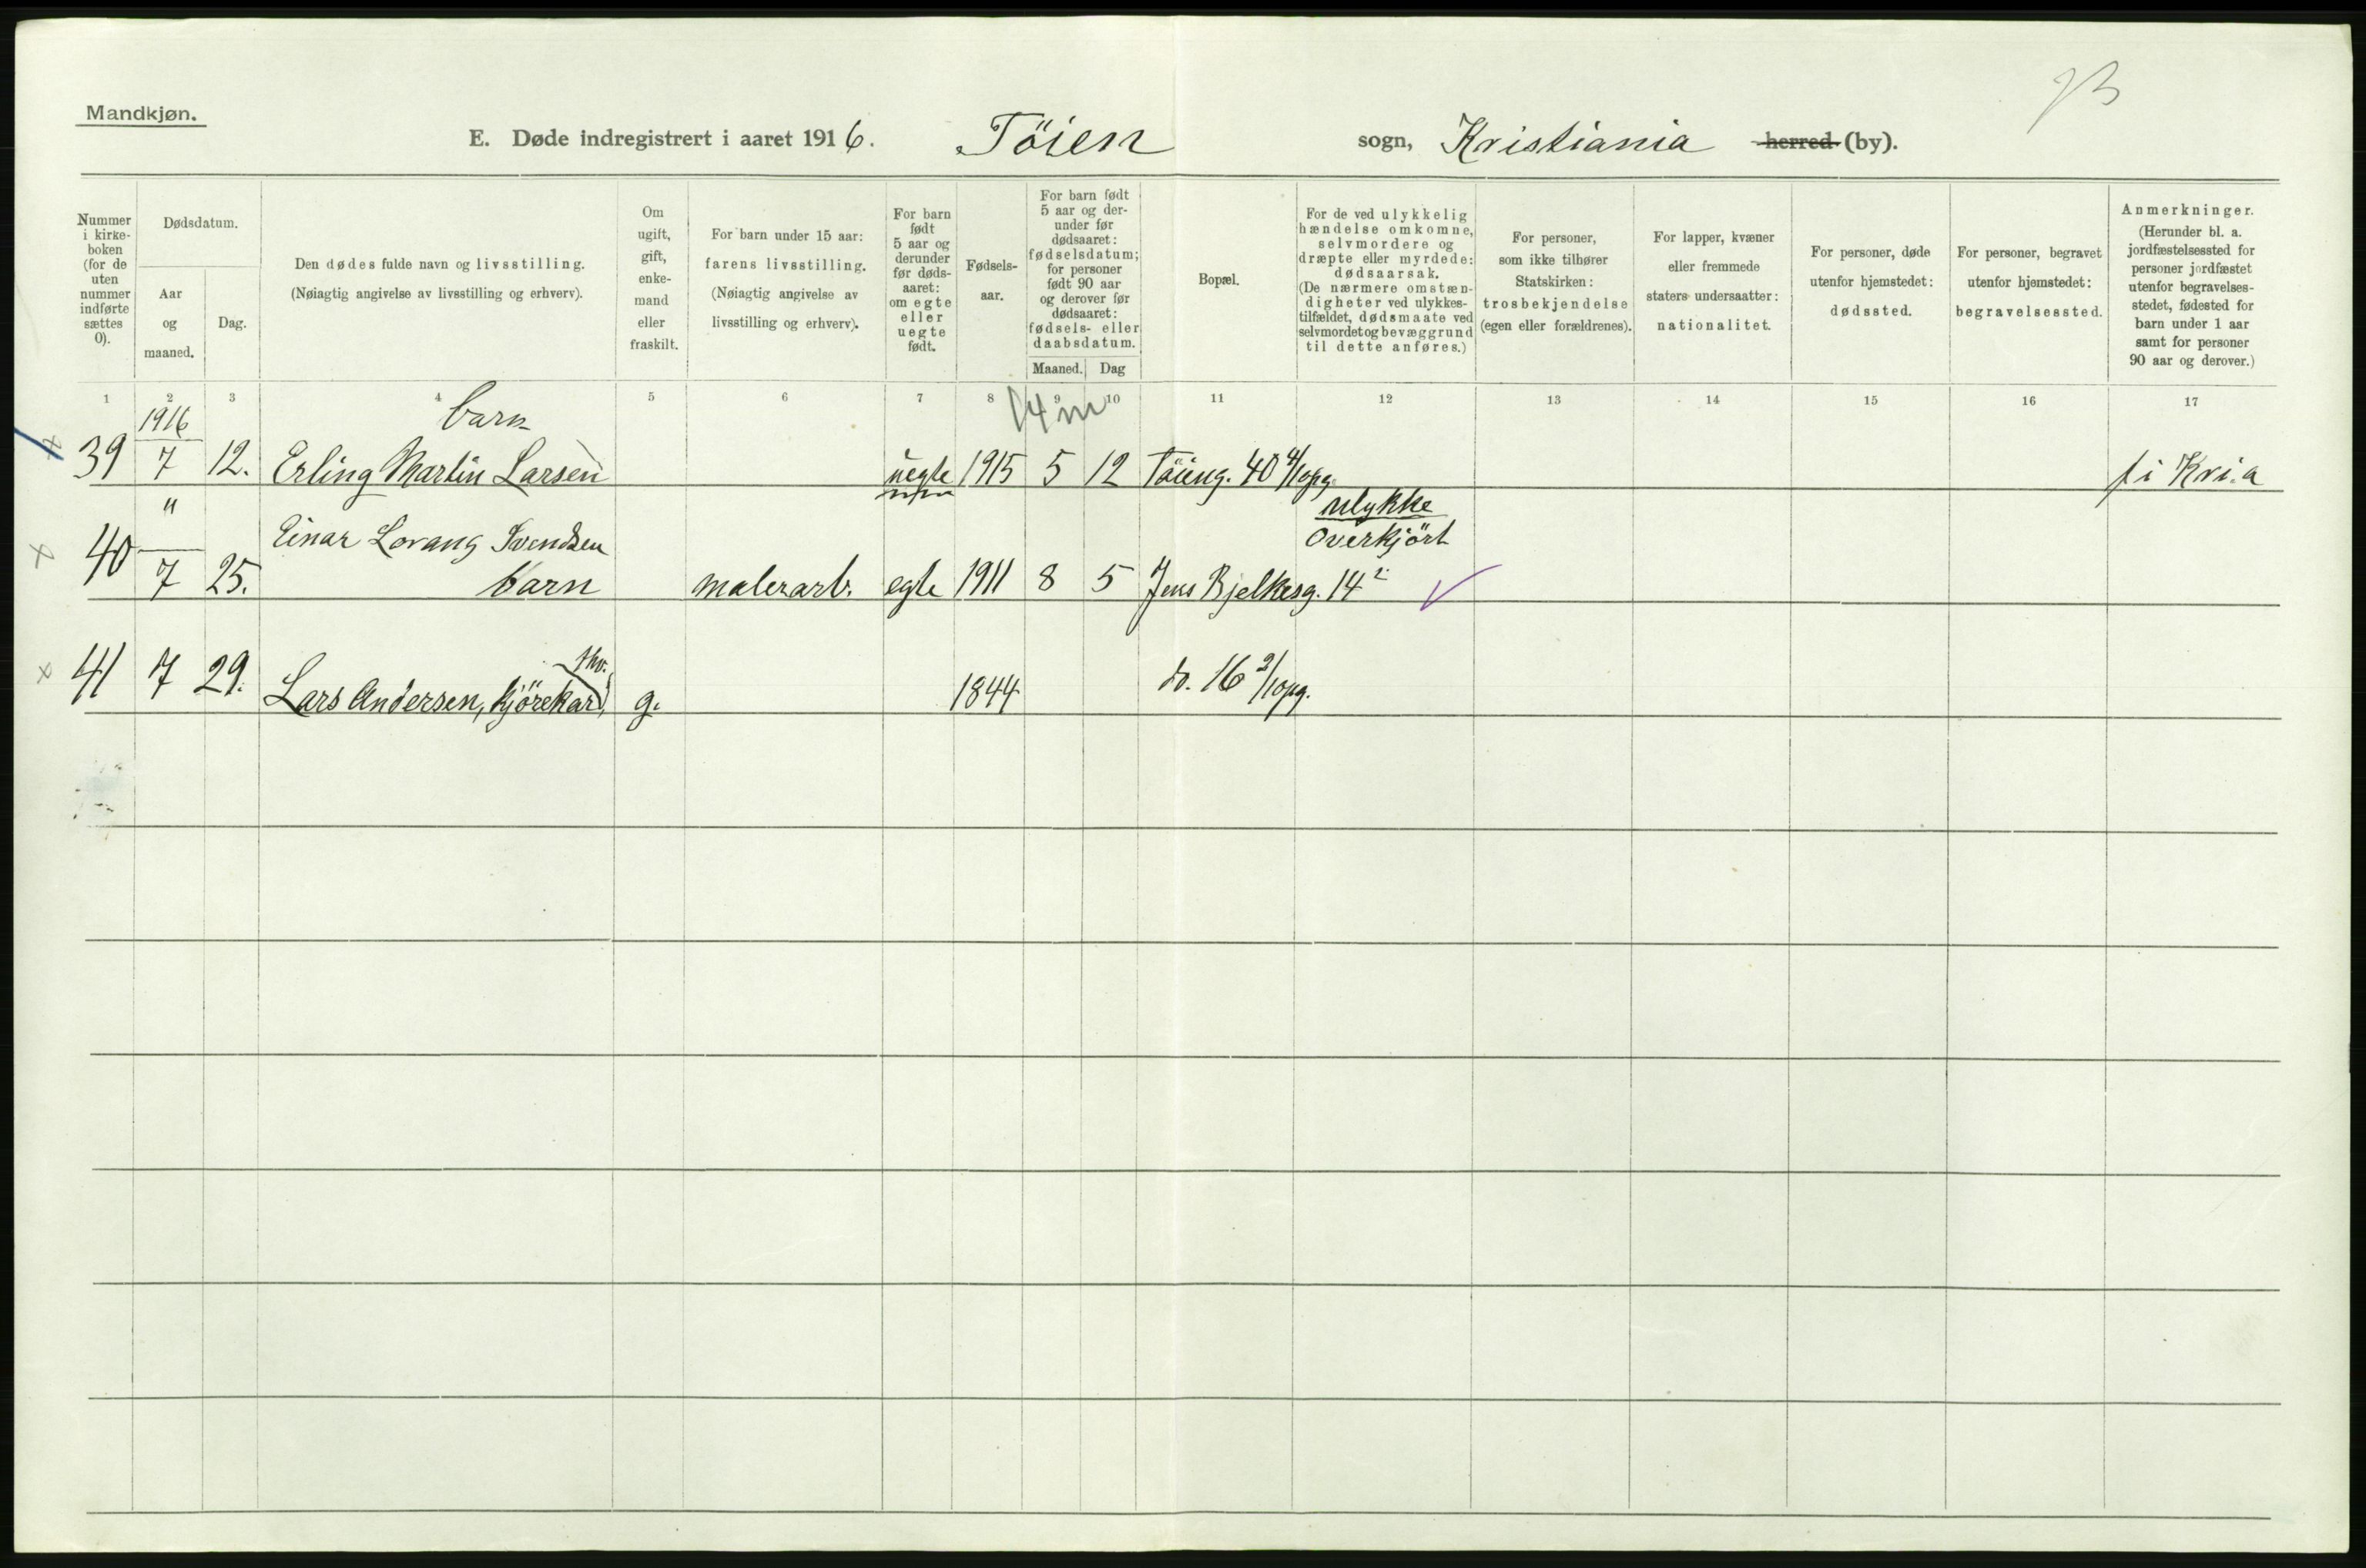 Mandkjøn.
E. Døde indregistrert i aaret 1916. Töien sogn, Kristiania herred (by).
Nummer i kirkeboken (for de uten nummer indførte sættes 0).
Dødsdatum.
Aar og maaned.
Dag.
Den dødes fulde navn og livsstilling.
(Nøiagtig angivelse av livsstilling og erhverv).
Om ugift, gift, enkemand eller fraskilt.
For barn under 15 aar: farens livsstilling.
(Nøiagtig angivelse av livsstilling og erhverv).
For barn født 5 aar og derunder før dødsaaret: om egte eller uegte født.
Fødselsaar.
For barn født 5 aar og derunder før dødsaaret: fødselsdatum; for personer født 90 aar og derover før dødsaaret: fødsels- eller daabsdatum.
Maaned. Dag
Bopæl.
For de ved ulykkelig hændelse omkomne, selvmordere og dræpte eller myrdede: dødsaarsak.
(De nærmere omstændigheter ved ulykkestilfældet, dødsmaate ved selvmordet og bevæggrund til dette anføres.)
For personer, som ikke tilhører Statskirken: trosbekjendelse (egen eller forældrenes).
For lapper, kvæner eller fremmede staters undersaatter: nationalitet.
For personer, døde utenfor hjemstedet: dødssted.
For personer, begravet utenfor hjemstedet: begravelsessted.
Anmerkninger.
(Herunder bl. a. jordfæstelsessted for personer jordfæstet utenfor begravelsesstedet, fødested for barn under 1 aar samt for personer 90 aar og derover.)
1 2 3 4 5 6 7 8 9 10 11 12 13 14 15 16 17
1916 barn 14 m
39 7 12. Erling Martin Larsen uegte 1915 5 12 Töieng. 40 4/opg. f i Kri.a
" ulykke
Einar Lovang Svendsen overkjört
40 7 25. barn malerarb. egte 1911 8 5 Jens Bjelkesg. 14 2
41 7 29. Lars Andersen, kjörekarl, g. 1844 do. 16 2/opg.